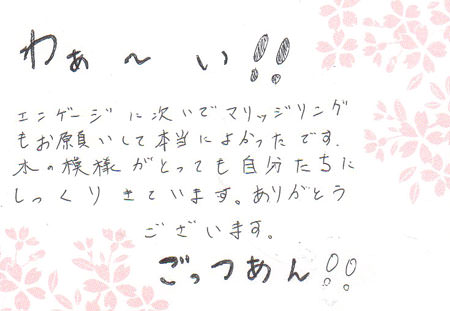 わぁ〜い!!
エンゲージに次いでマリッジリング
もお願いして本当によかったです.
木の模様がとっても自分たちに
しっくりきています。ありがとう
ございます。
ごっつあん!!